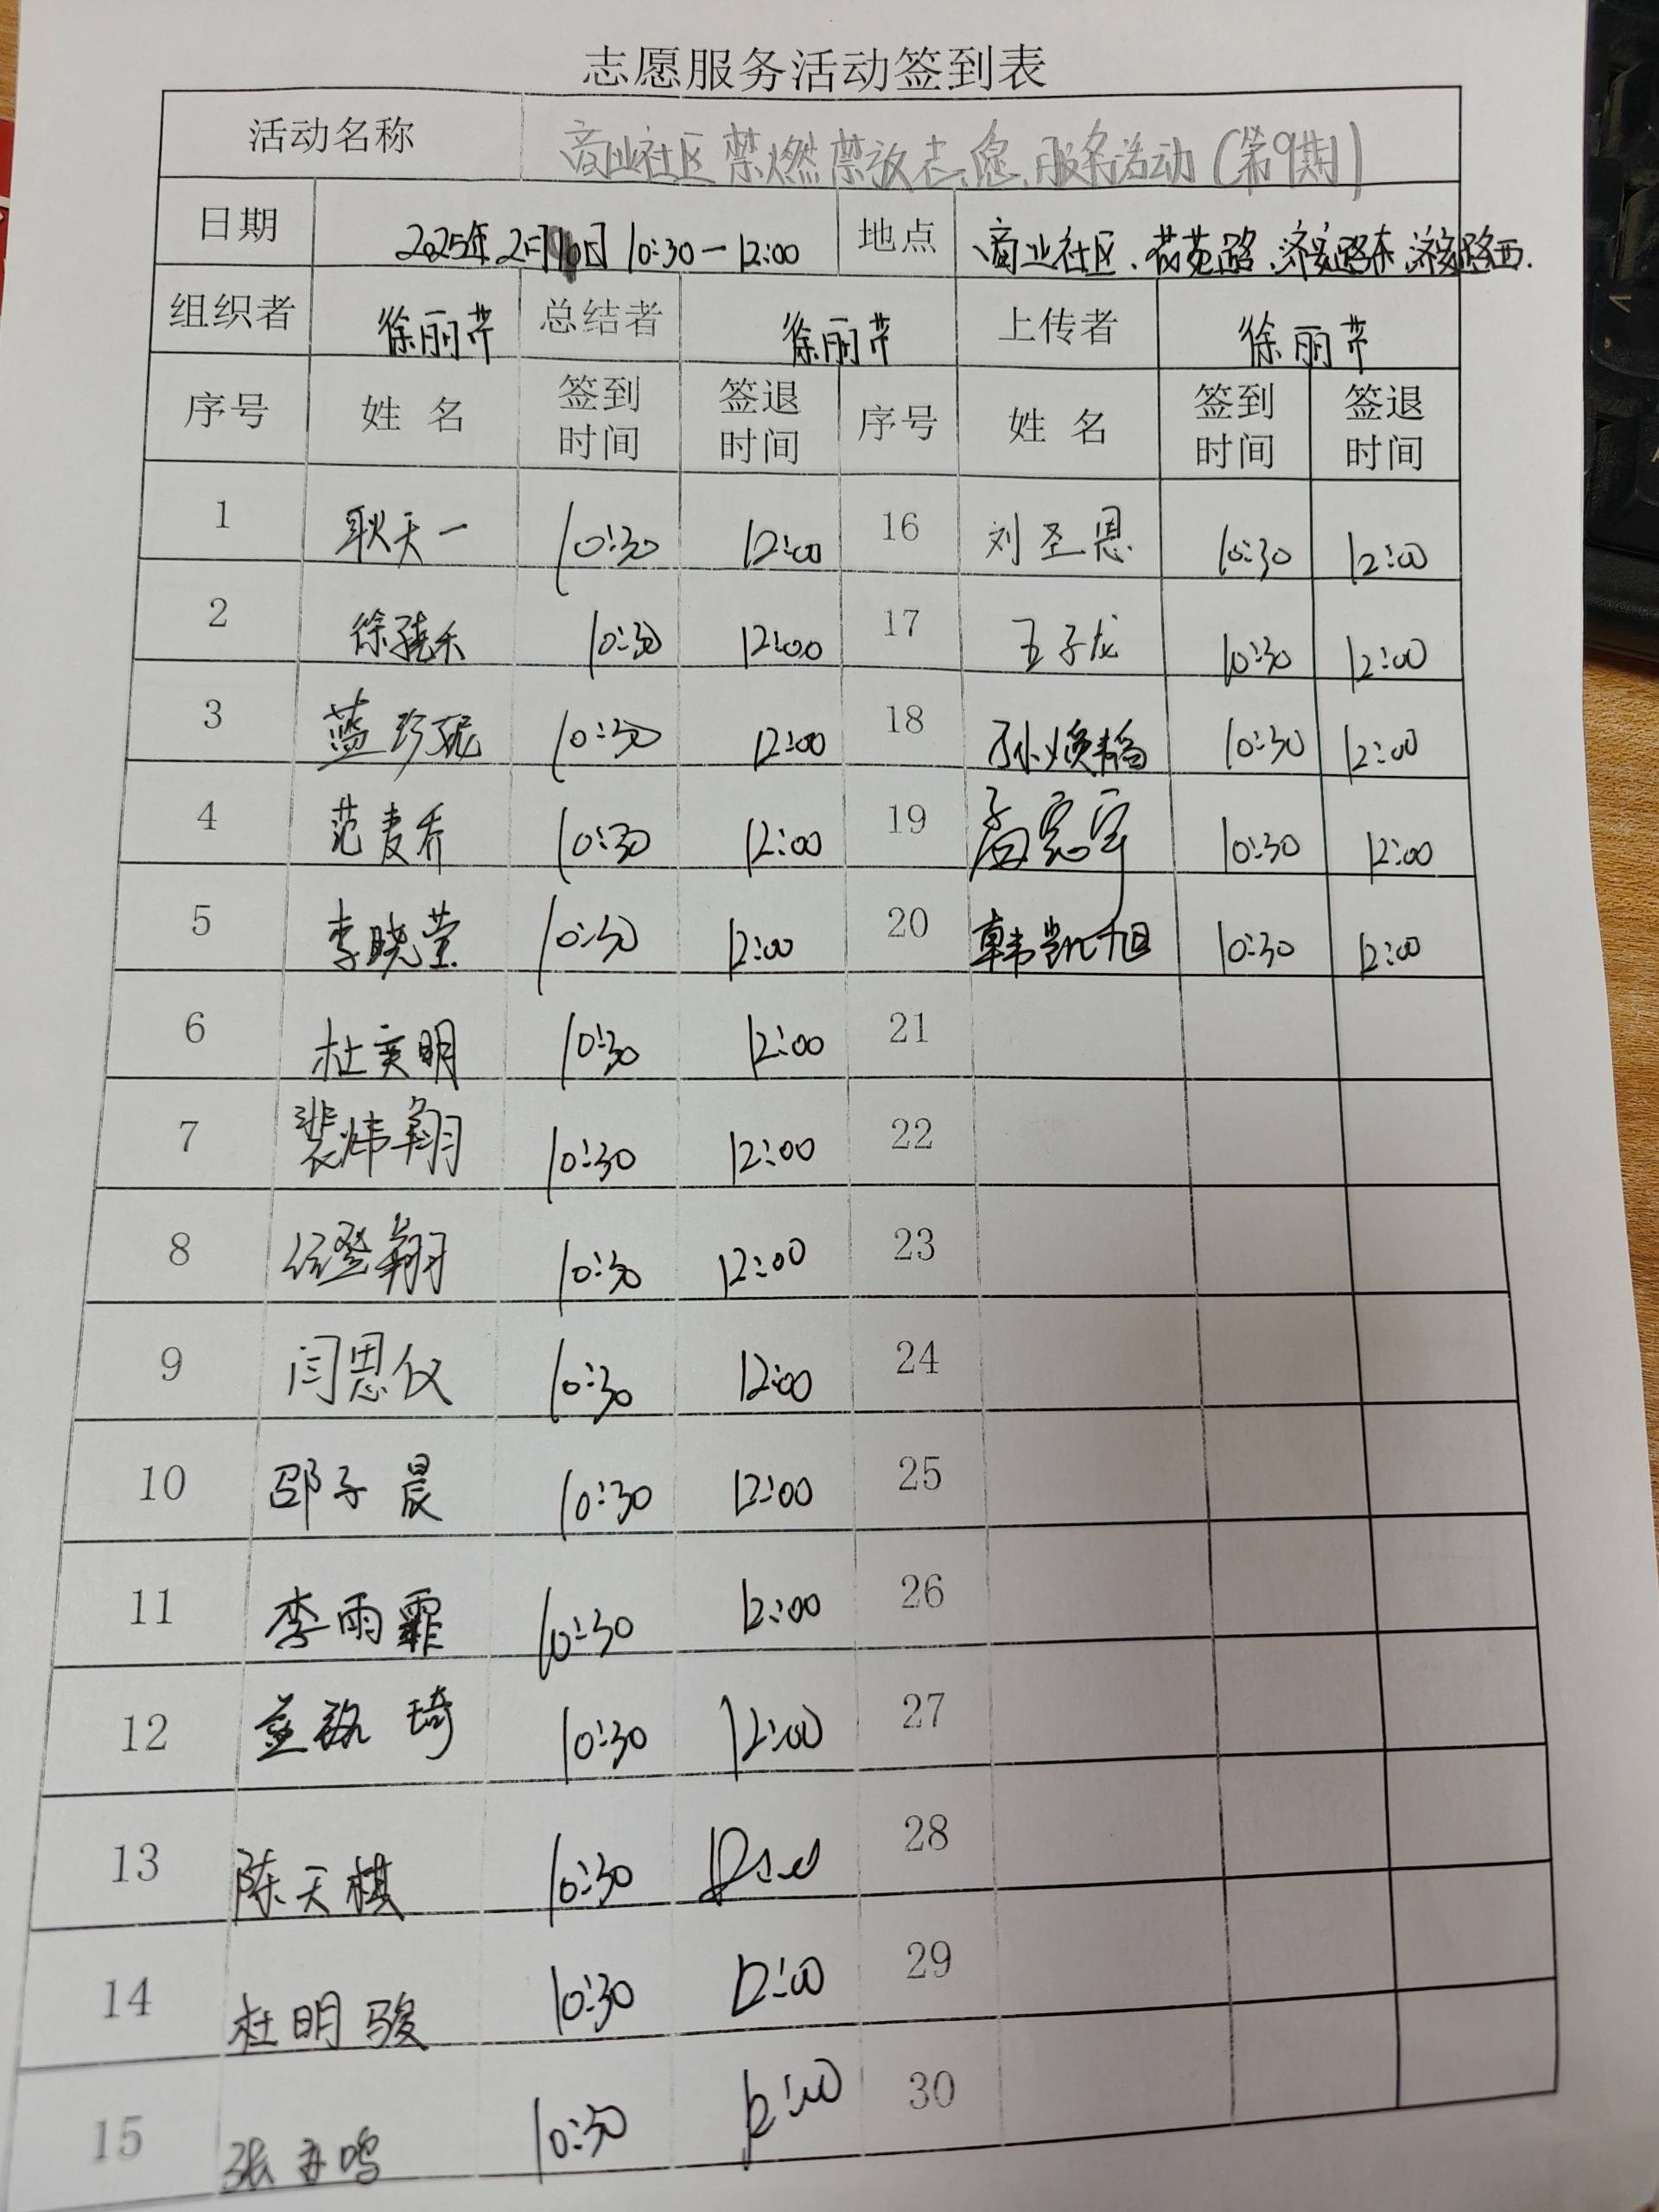 志愿服务活动签到表
活动名称 商业社区禁燃禁放志愿服务活动(第9期)
日期 2025年2月10日 10:30-12:00 地点 商业社区、荷苑路、济安路东、济安路西.
组织者 徐丽芹 总结者 徐丽芹 上传者 徐丽芹
序号 姓名 签到时间 签退时间 序号 姓名 签到时间 签退时间
1 耿天一 10:30 12:00 16 刘圣恩 10:30 12:00
2 徐 禾 10:30 12:00 17 王子龙 10:30 12:00
3 蓝珍妮 10:30 12:00 18 孙焕 10:30 12:00
4 范麦乔 10:30 12:00 19 宇 10:30 12:00
5 李晓莹 10:30 12:00 20 韩凯旭 10:30 12:00
6 杜奕明 10:30 12:00 21
7 裴炜翔 10:30 12:00 22
8 任登翔 10:30 12:00 23
9 闫恩仪 10:30 12:00 24
10 邵子晨 10:30 12:00 25
11 李雨霏 10:30 12:00 26
12 琦 10:30 12:00 27
13 陈天棋 10:30 12:00 28
14 杜明骏 10:30 12:00 29
15 张 鸣 10:30 12:00 30